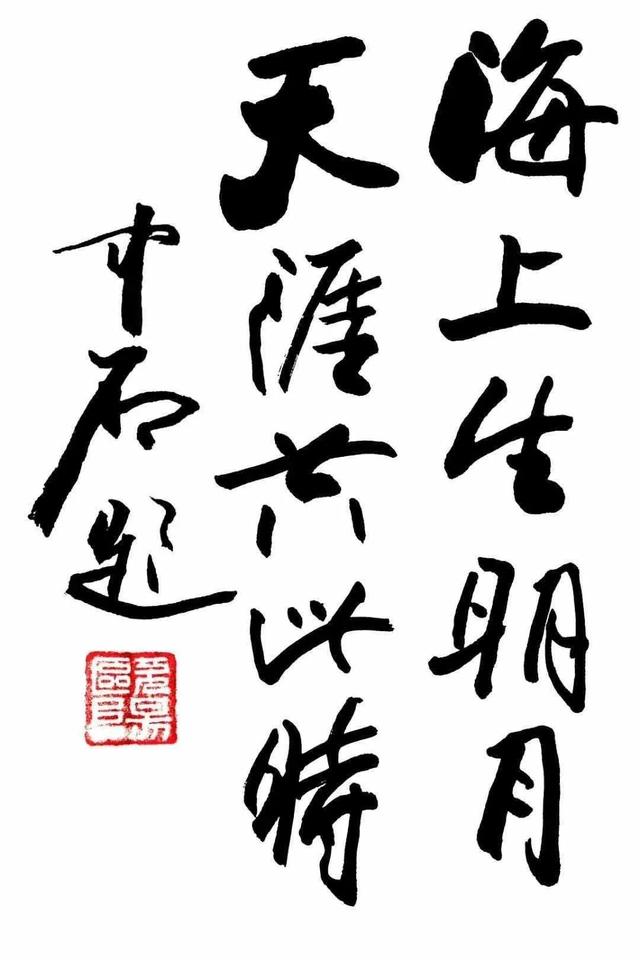 海上生明月
天涯共此时
中石题